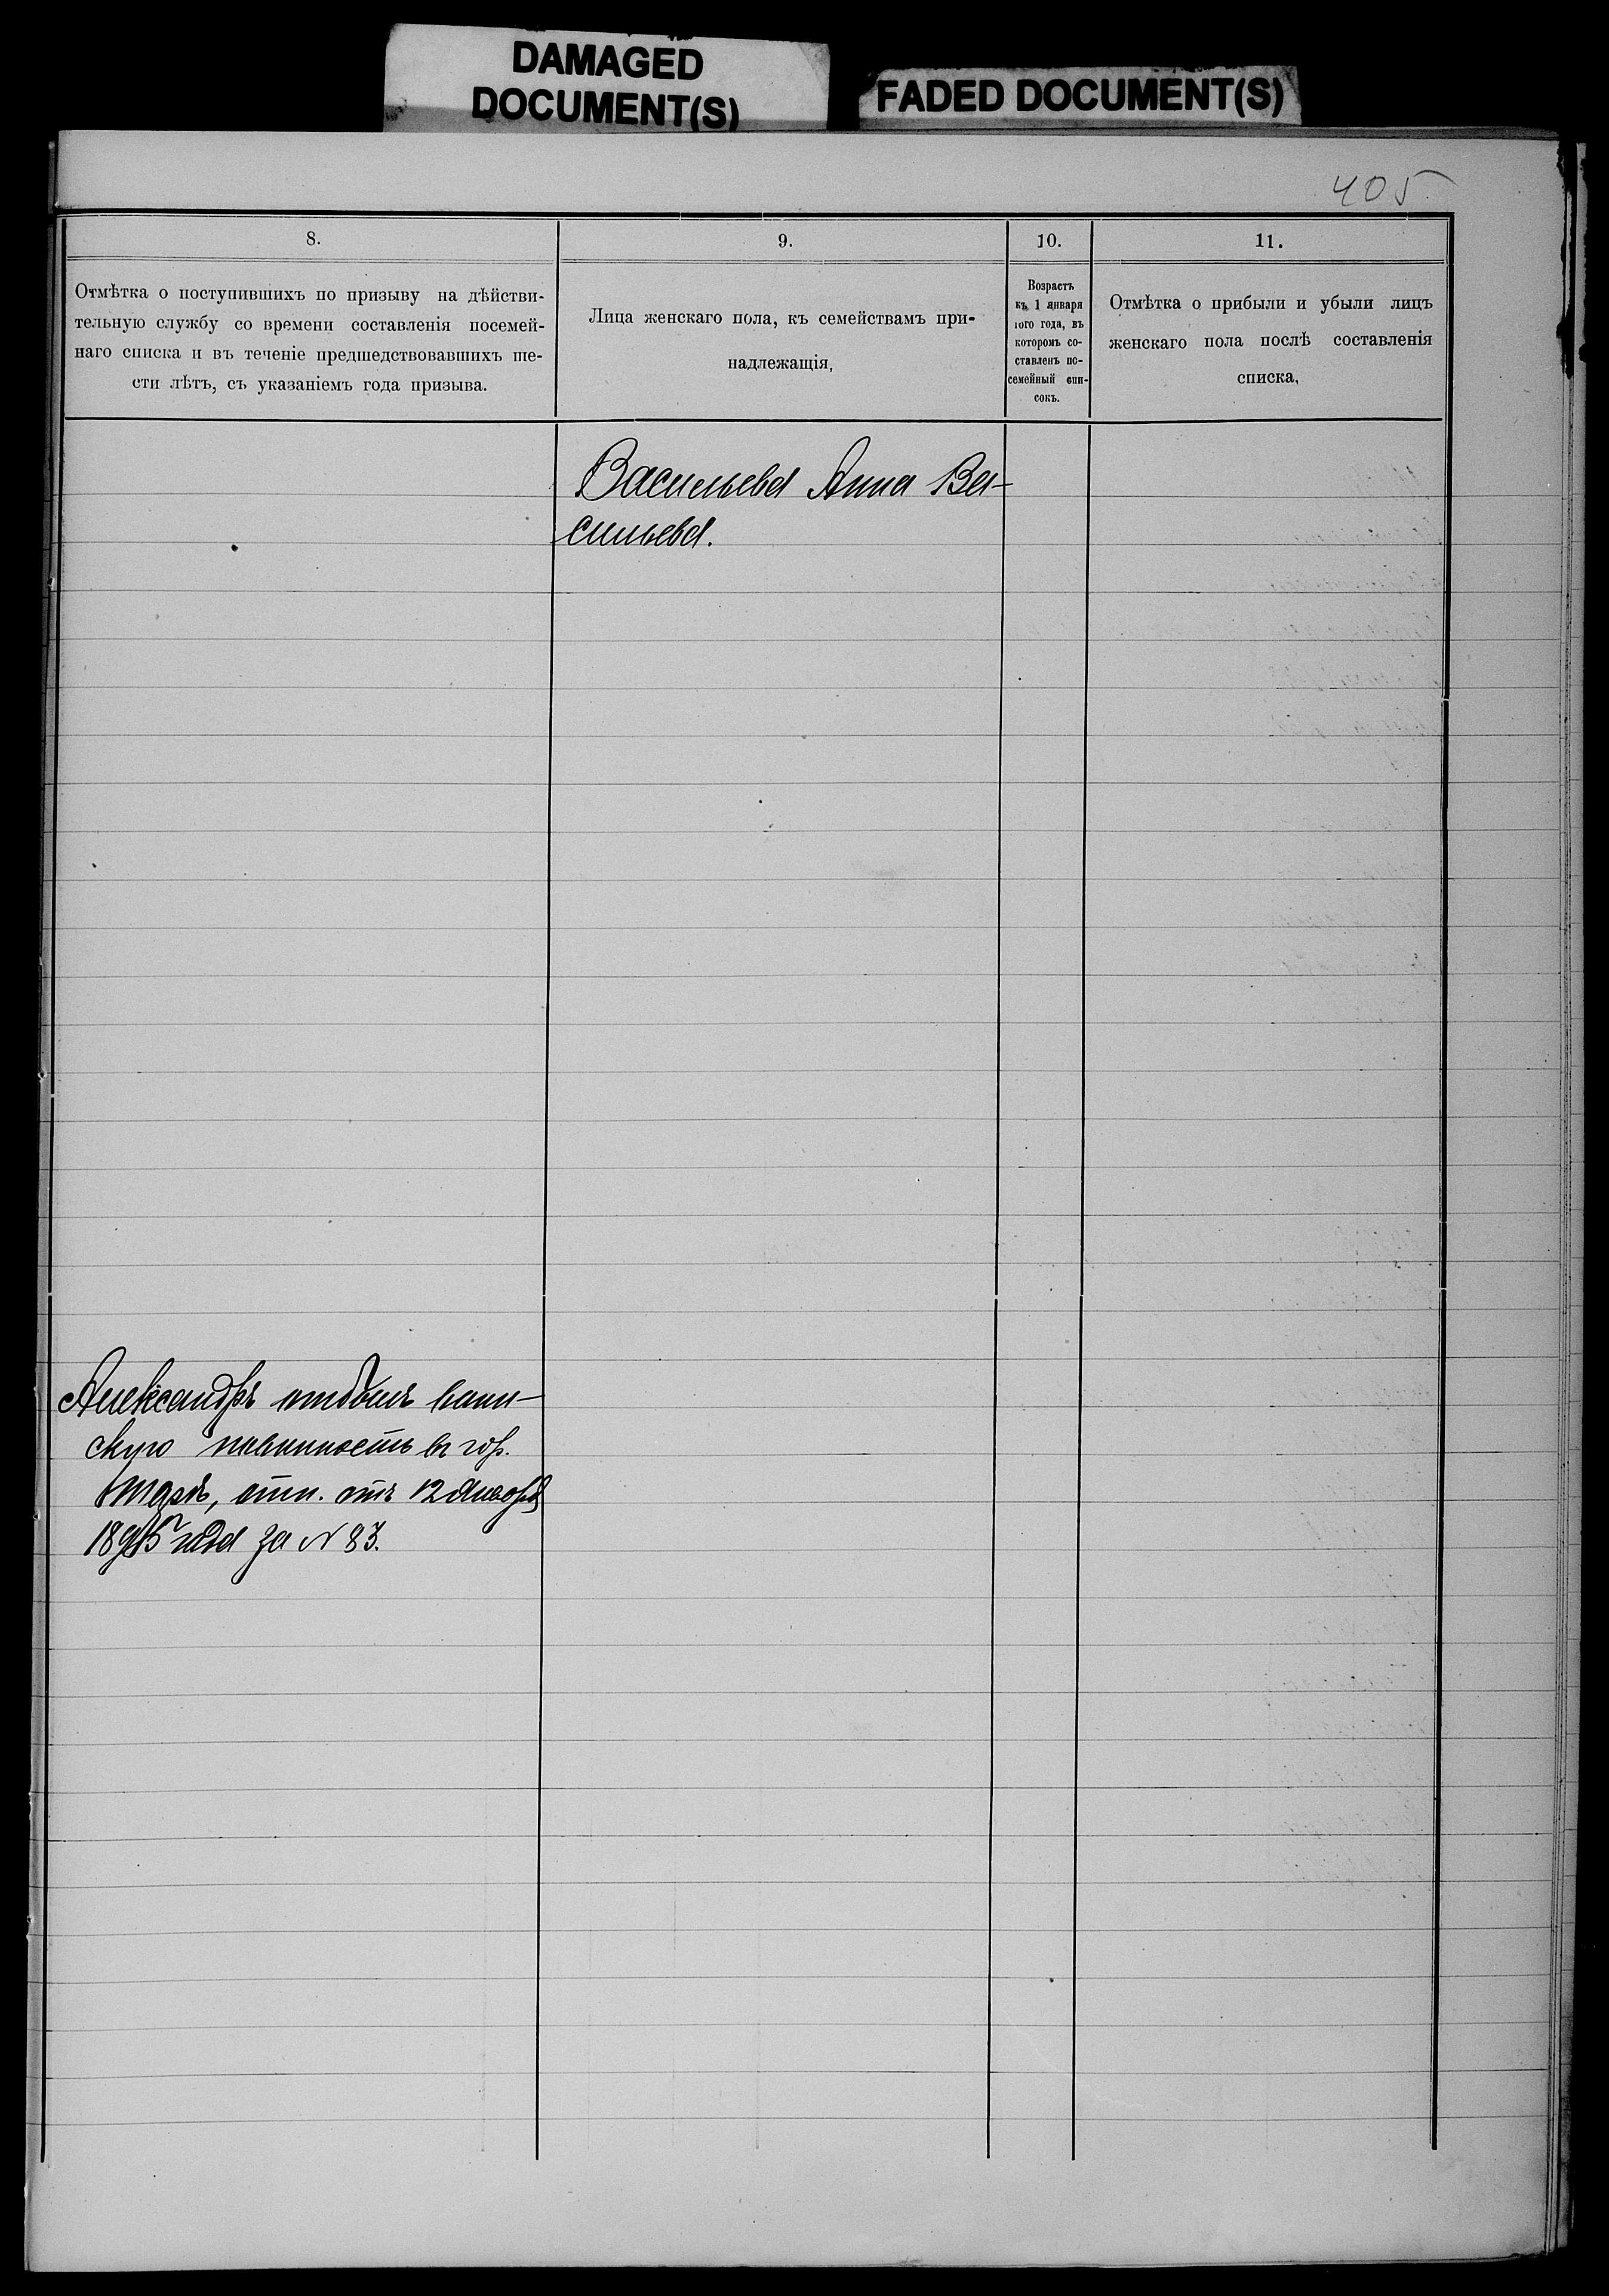 DAMAGED
DOCUMENT(S)
FADED DOCUMENT(S)
405
8.
Отмѣтка о поступившихъ по призыву на дѣйстви-
тельную службу со времени составленія посемей-
наго списка и въ теченіе предшедствовавшихъ ше-
сти лѣтъ, съ указаніемъ года призыва.
9.
Лица женскаго пола, къ семействамъ при-
надлежащія,
10.
Возрастъ
къ 1 января
того года, въ
которомъ со-
ставленъ по-
семейный спи-
сокъ.
11.
Отмѣтка о прибыли и убыли лицъ
женскаго пола послѣ составленія
списка,
Васильева Анна Ва-
сильева.
Александръ отбылъ воин-
скую повинность въ гор.
отп. отъ 12 Января
1895 года за N 83.